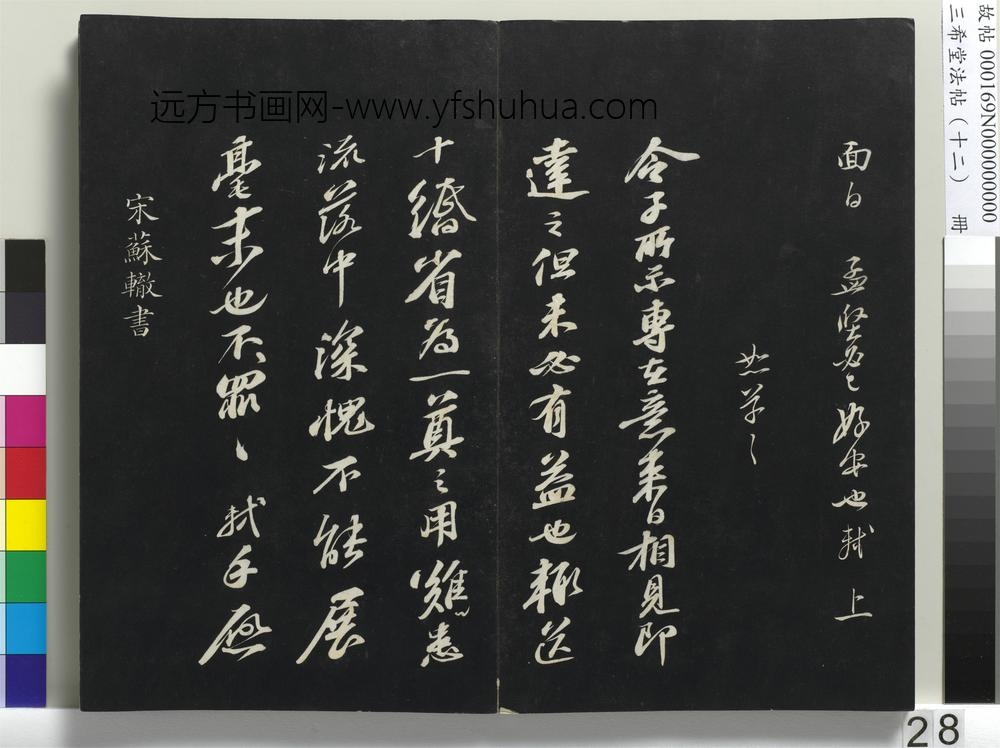 故帖 000169N000000000
三希堂法帖（十二） 冊
远方书画网-www.yfshuhua.com
面白 孟堅必已好安也軾上
草〻
令子所示專在意來日相見即
達之但未必有益也輒送
十緡省為一奠之用艱患
流落中深愧不能展
毫末也不罪〻軾手啟
宋蘇轍書
28